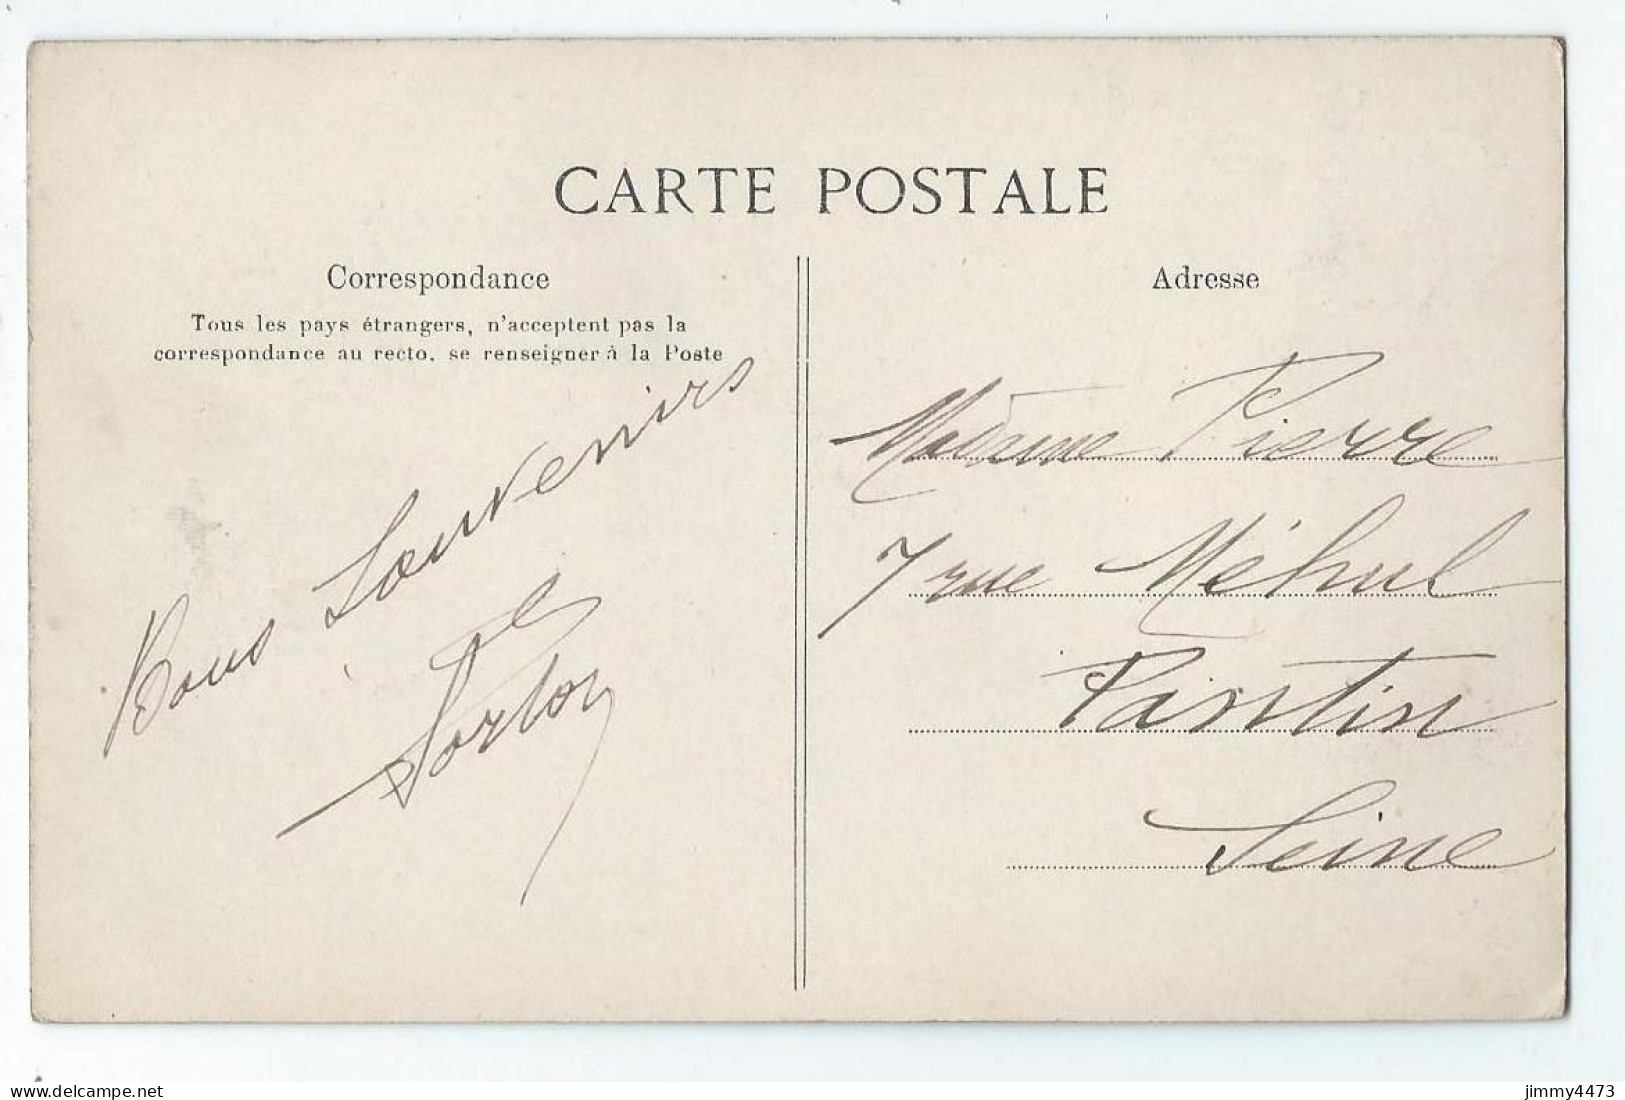 CARTE POSTALE
Correspondance
Tous les pays étrangers, n'acceptent pas la
correspondance au recto, se renseigner à la Poste
Bons Souvenirs
Adresse
Madame Pierre
7 rue Méhul
Pantin
Seine
www.delcampe.net
jimmy4473